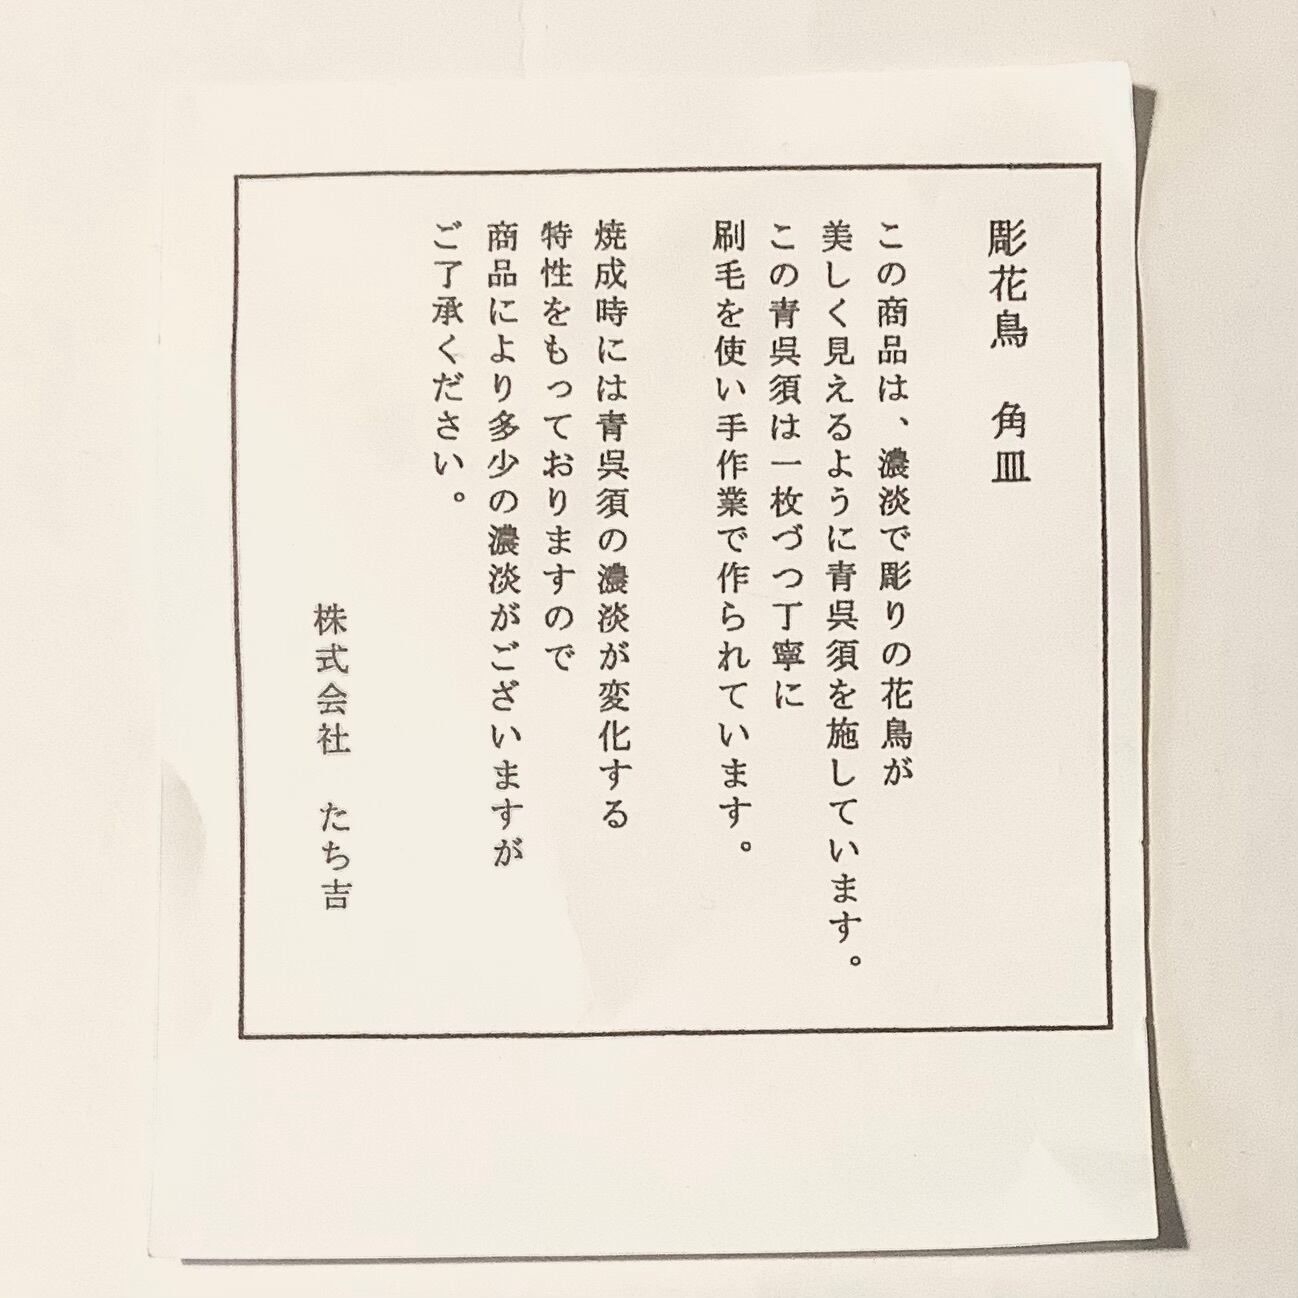 彫花鳥　角皿
この商品は、濃淡で彫りの花鳥が
美しく見えるように青呉須を施しています。
この青呉須は一枚づつ丁寧に
刷毛を使い手作業で作られています。
焼成時には青呉須の濃淡が変化する
特性をもっておりますので
商品により多少の濃淡がございますが
ご了承ください。
株式会社　たち吉